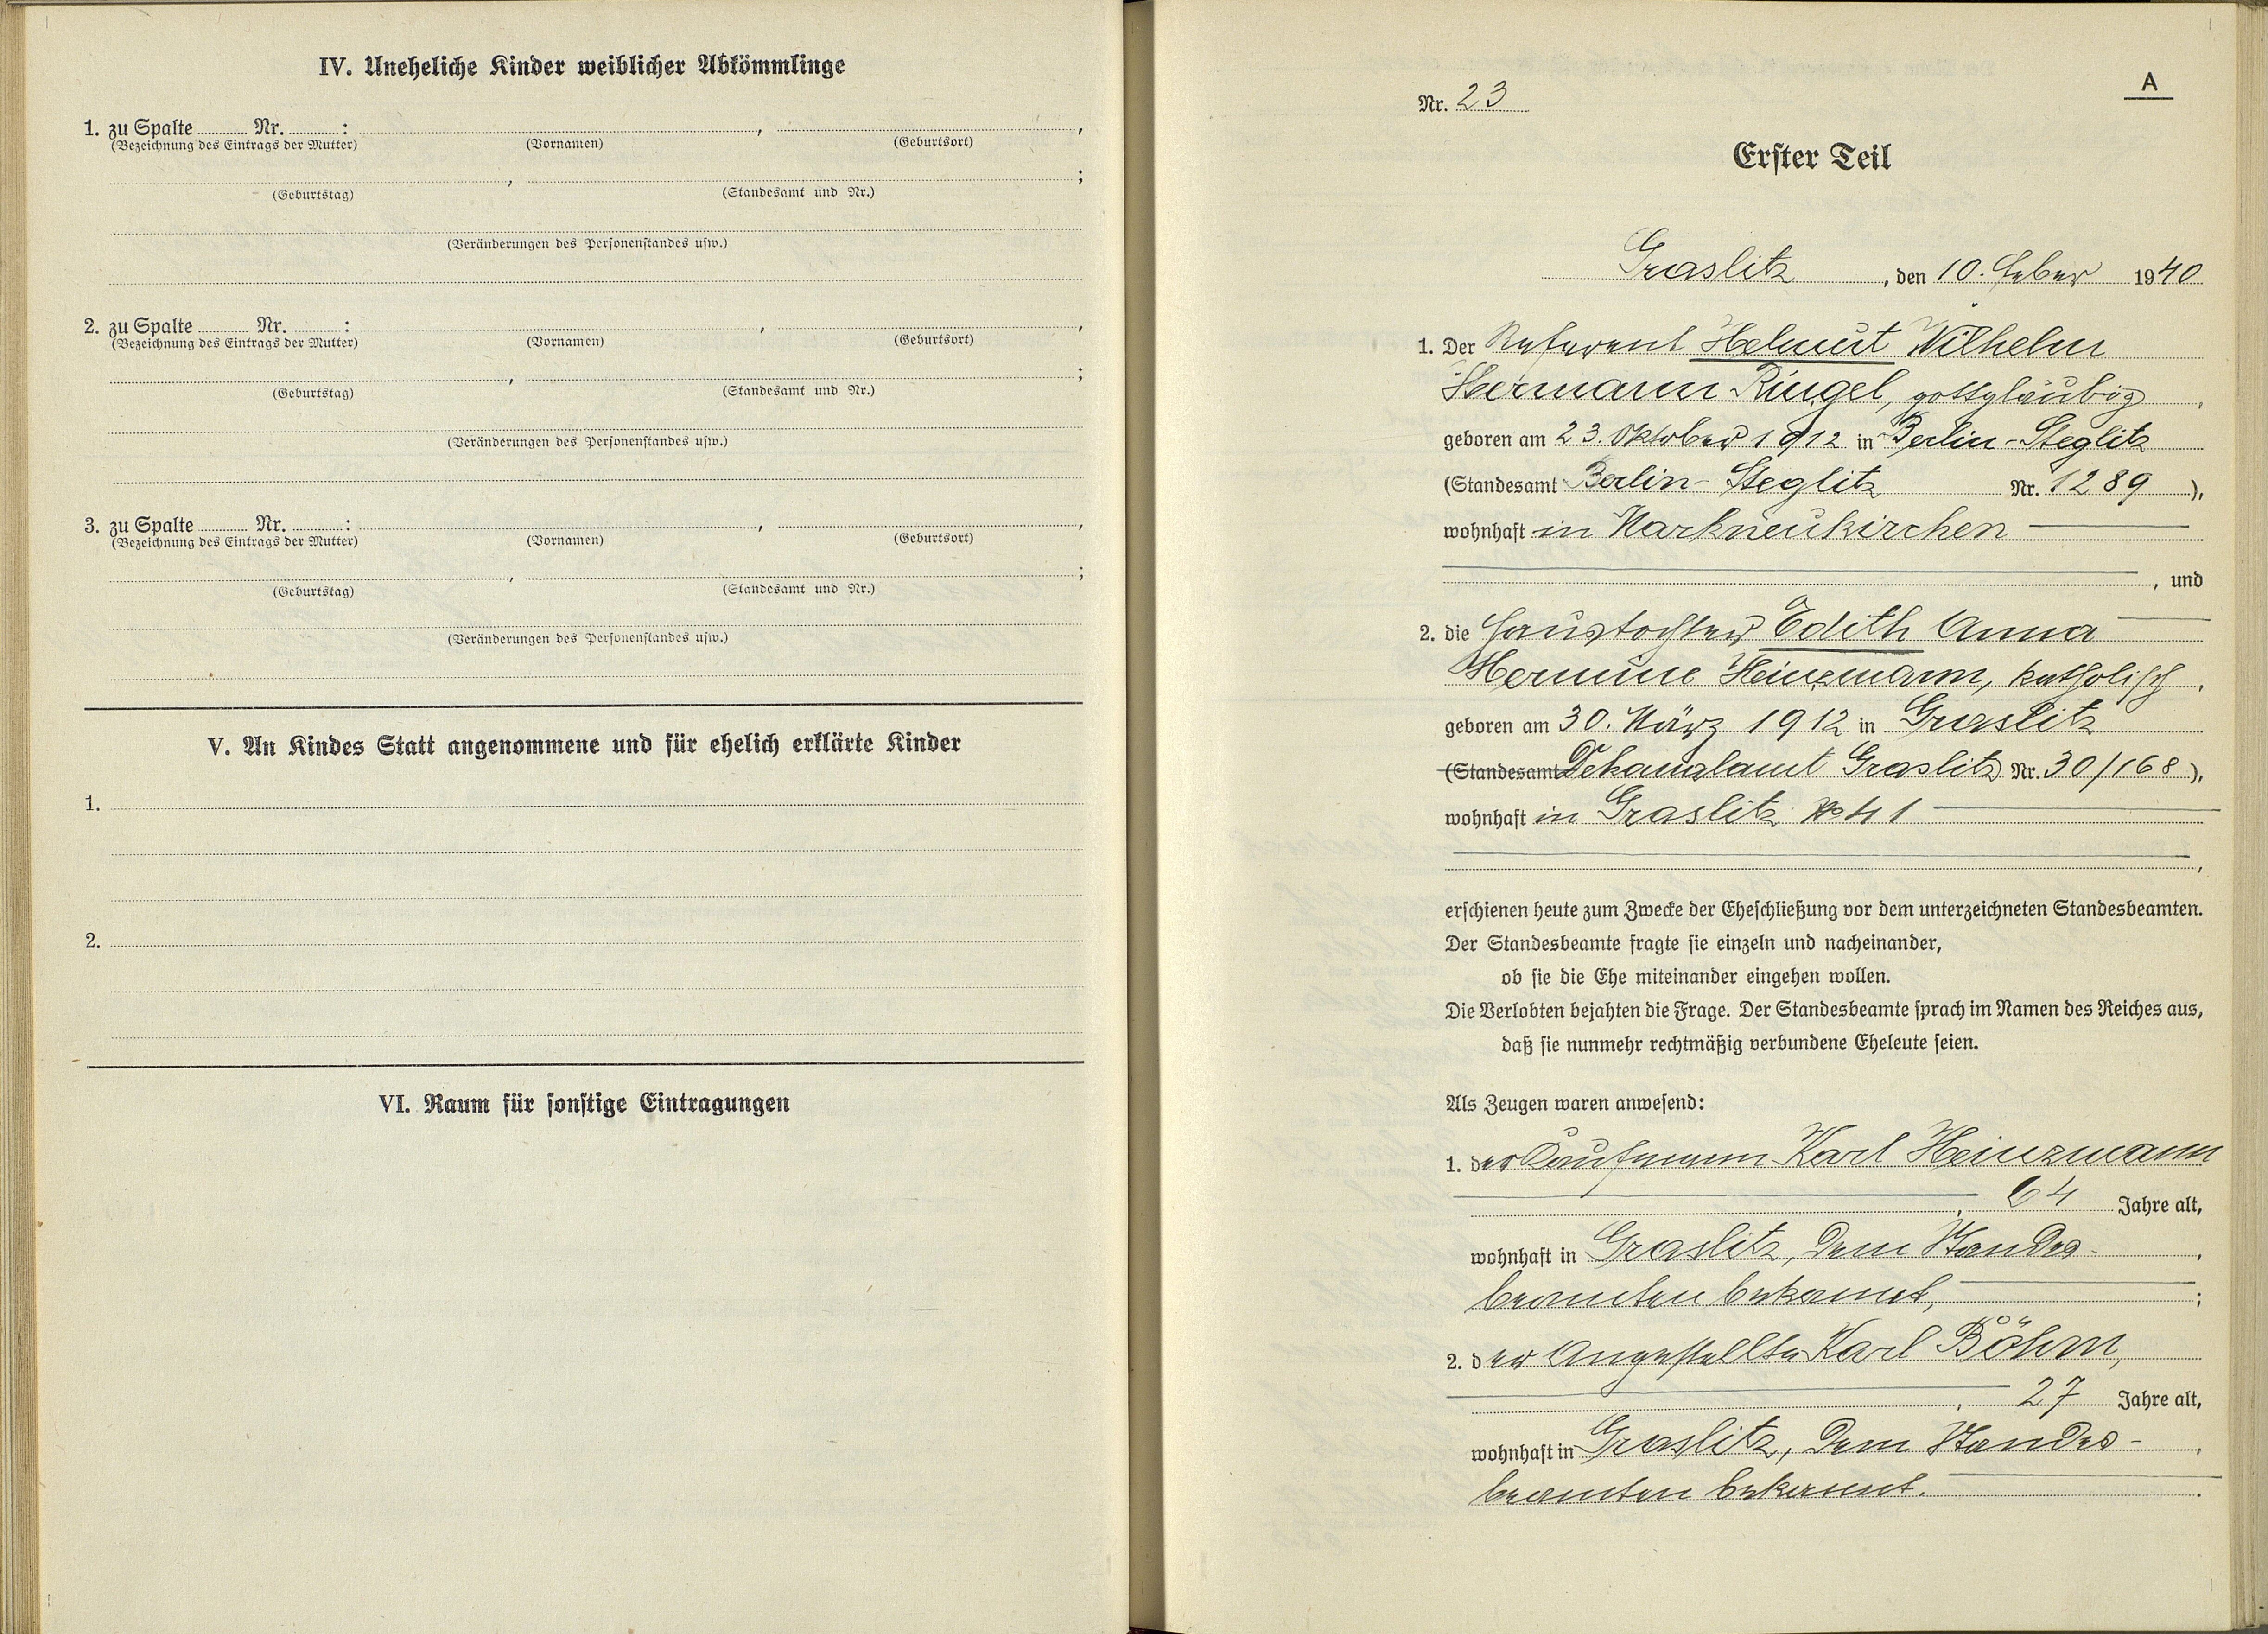 IV. Uneheliche Kinder weiblicher Abkömmlinge
1. zu Spalte ........ Nr. ........ : ........ , ........ ,
(Bezeichnung des Eintrags der Mutter) (Vornamen) (Geburtsort)
........ , ........ ;
(Geburtstag) (Standesamt und Nr.)
(Veränderungen des Personenstandes usw.)
2. zu Spalte ........ Nr. ........ : ........ , ........ ,
(Bezeichnung des Eintrags der Mutter) (Vornamen) (Geburtsort)
........ , ........ ;
(Geburtstag) (Standesamt und Nr.)
(Veränderungen des Personenstandes usw.)
3. zu Spalte ........ Nr. ........ : ........ , ........ ,
(Bezeichnung des Eintrags der Mutter) (Vornamen) (Geburtsort)
........ , ........ ;
(Geburtstag) (Standesamt und Nr.)
(Veränderungen des Personenstandes usw.)
V. An Kindes Statt angenommene und für ehelich erklärte Kinder
1.
2.
VI. Raum für sonstige Eintragungen
A
Nr. 23
Erster Teil
Graslitz, den 10. Feber 1940
1. Der Referent Helmut Wilhelm
Hermann Ringel, gottgläubig,
geboren am 23. Oktober 1912 in Berlin-Steglitz
(Standesamt Berlin-Steglitz Nr. 1289),
wohnhaft in Markneukirchen
, und
2. die Haustochter Edith Anna
Hermine Heinzmann, katholisch,
geboren am 30. März 1912 in Graslitz
(Standesamt Dekanalamt Graslitz Nr. 30/168),
wohnhaft in Graslitz No 41
,
erschienen heute zum Zwecke der Eheschließung vor dem unterzeichneten Standesbeamten.
Der Standesbeamte fragte sie einzeln und nacheinander,
ob sie die Ehe miteinander eingehen wollen.
Die Verlobten bejahten die Frage. Der Standesbeamte sprach im Namen des Reiches aus,
daß sie nunmehr rechtmäßig verbundene Eheleute seien.
Als Zeugen waren anwesend:
1. der Kaufmann Karl Heinzmann
, 64 Jahre alt,
wohnhaft in Graslitz, dem Standes-,
beamten bekannt, ;
2. der Angestellte Karl Böhm,
, 27 Jahre alt,
wohnhaft in Graslitz, dem Standes-,
beamten bekannt.